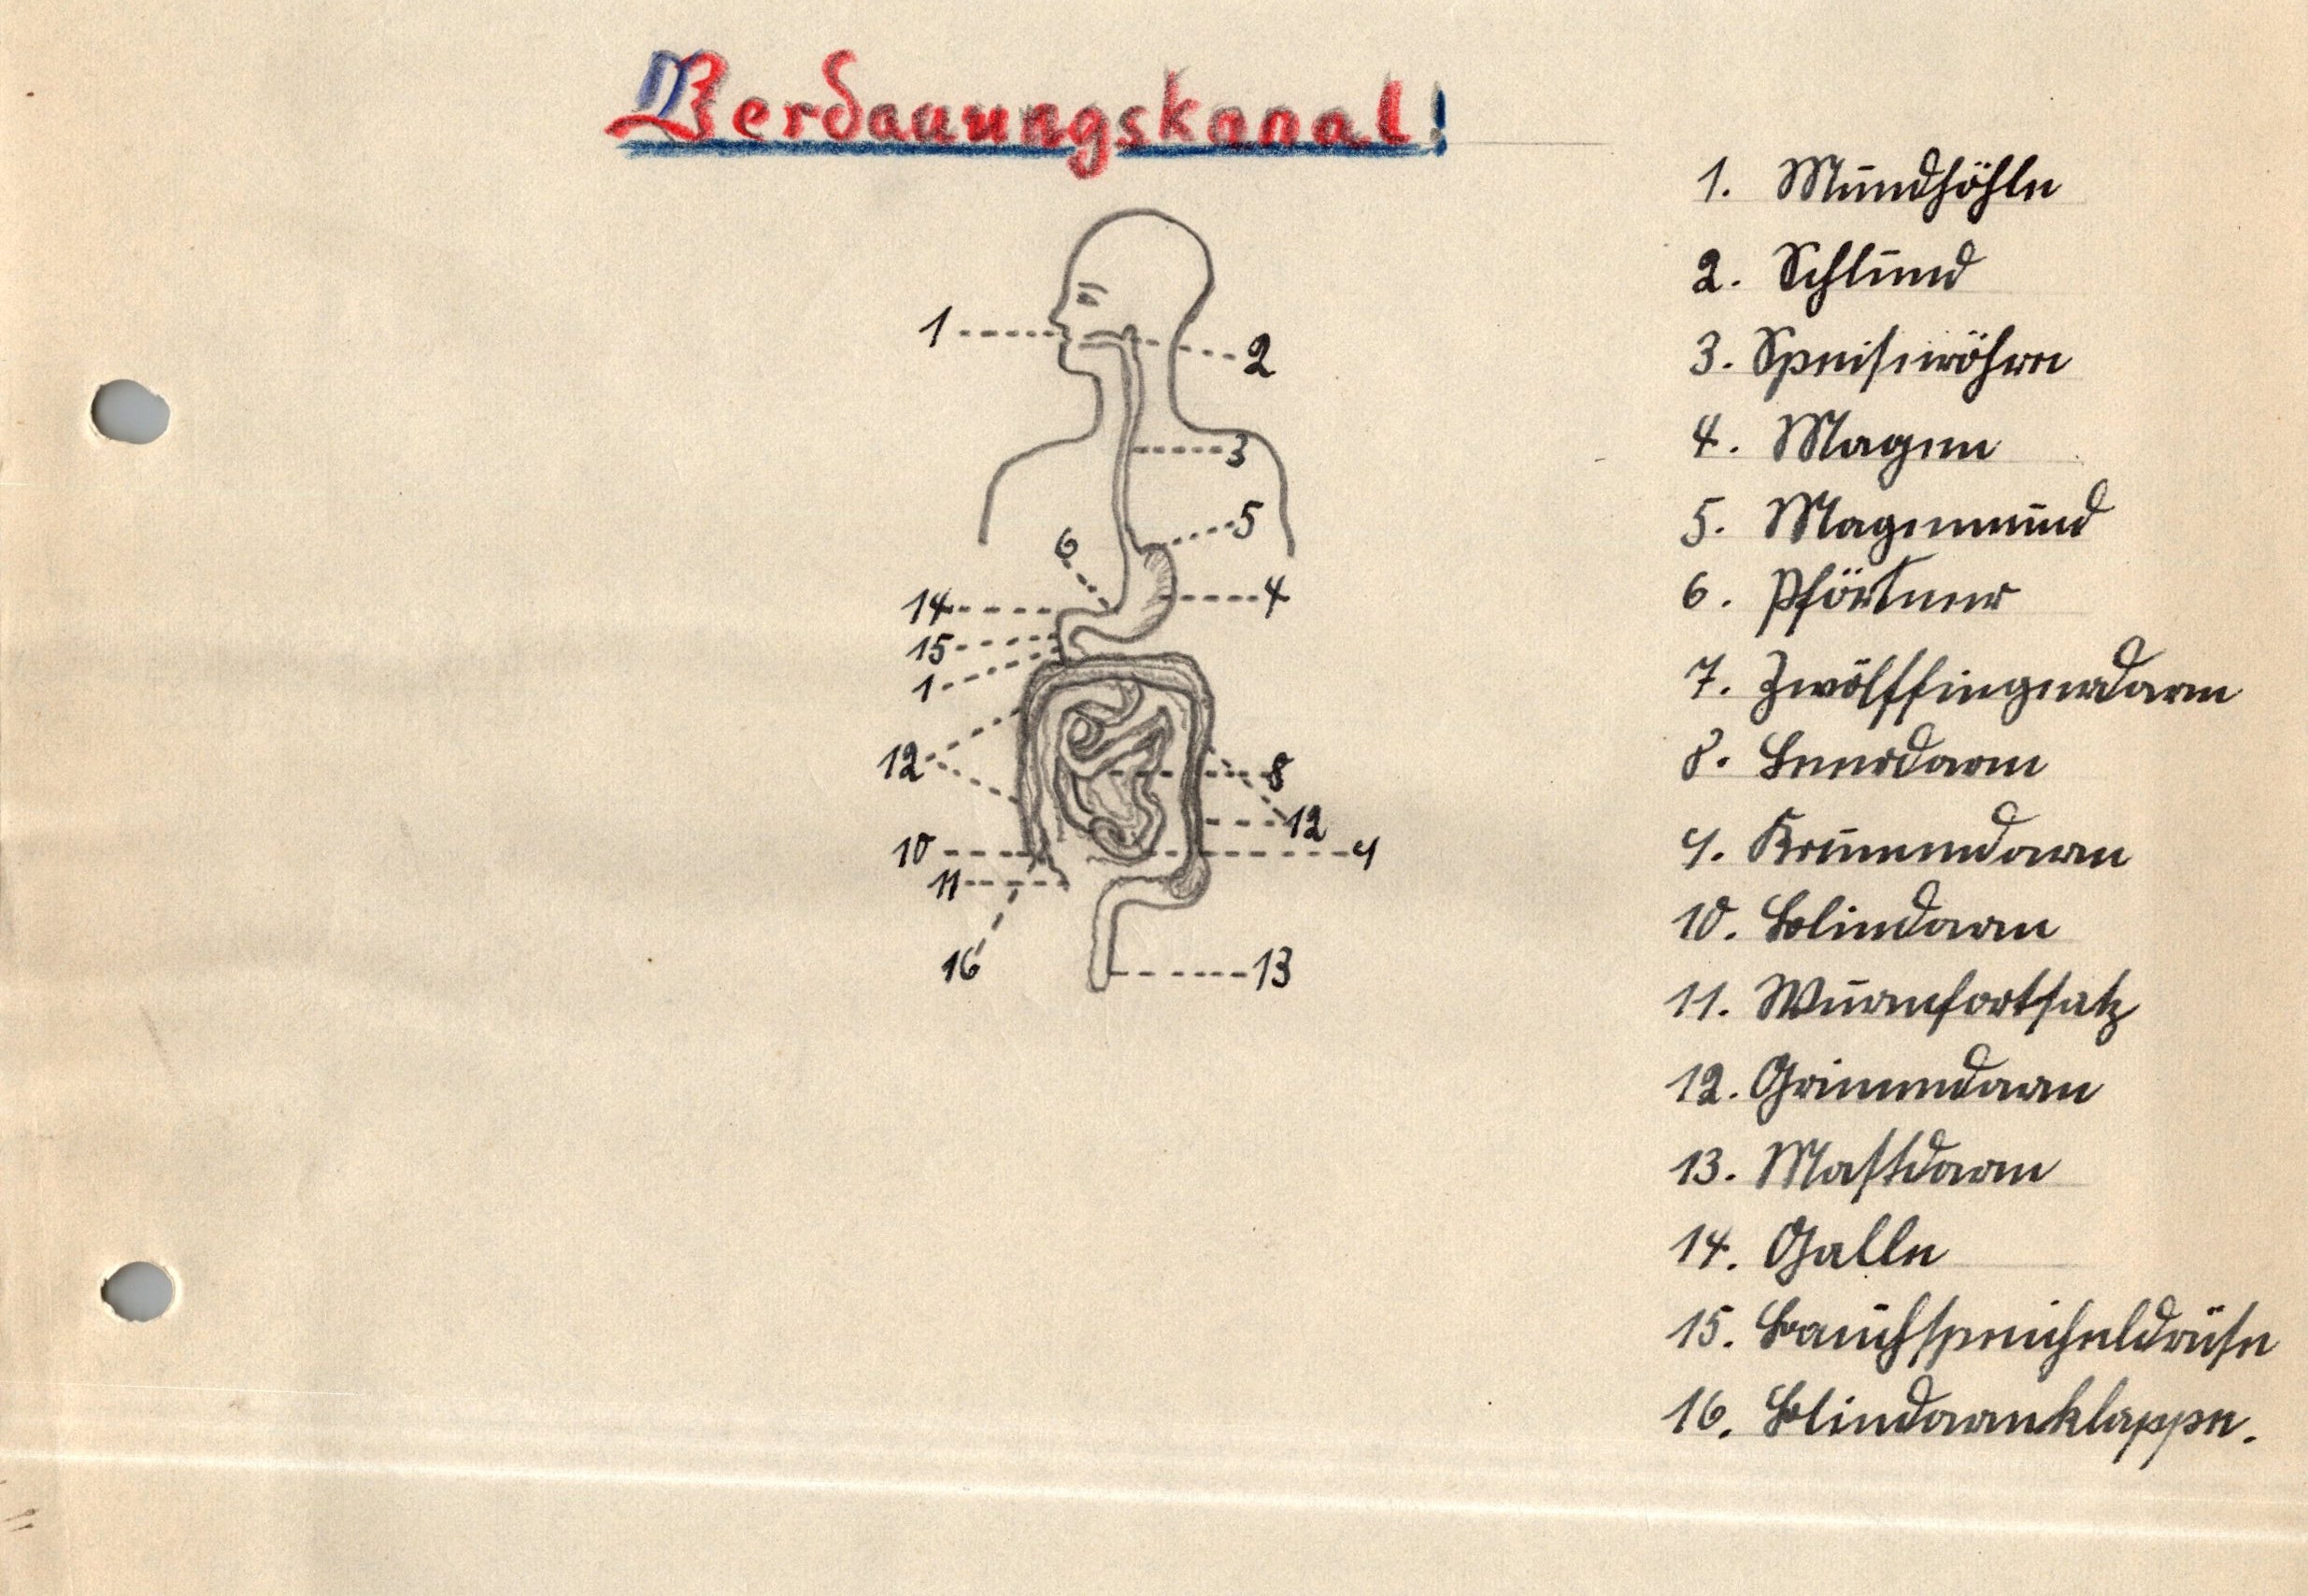 Verdauungskanal!
1. Mundhöhle
2. Schlund
3. Speiseröhre
4. Magen
5. Magenmund
6. Pförtner
7. Zwölffingerdarm
8. Leerdarm
9. Krummdarm
10. Blindarm
11. Wurmfortsatz
12. Grimmdarm
13. Mastdarm
14. Galle
15. Bauchspeicheldrüse
16. Blindarmklappe.
1
2
3
5
6
14
4
15
1
12
8
12
10
9
11
16
13